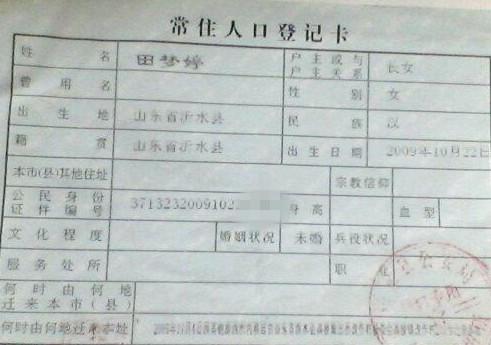 常住人口登记卡
姓名 田梦婷 户主或与户主关系 长女
曾用名 性别 女
出生地 山东省沂水县 民族 汉
籍贯 山东省沂水县 出生日期 2009年10月22日
本市(县)其他住址 宗教信仰
公民身份证件编号 3713232009102 身高 血型
文化程度 婚姻状况 未婚 兵役状况
服务处所 职
何时由何地迁来本市(县)
何时由何地迁来本址